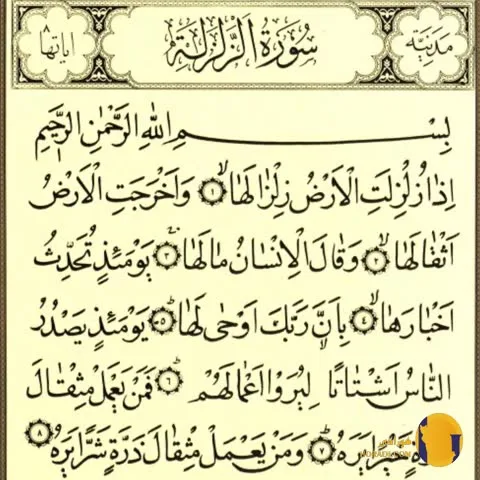 مدنية سورة الزلزلة اياتها ٨
بِسْمِ اللهِ الرَّحْمٰنِ الرَّحِيمِ
اِذَا زُلْزِلَتِ الْاَرْضُ زِلْزَالَهَاۙ ﴿١﴾ وَاَخْرَجَتِ الْاَرْضُ
اَثْقَالَهَاۙ ﴿٢﴾ وَقَالَ الْاِنْسَانُ مَالَهَاۚ ﴿٣﴾ يَوْمَئِذٍ تُحَدِّثُ
اَخْبَارَهَاۙ ﴿٤﴾ بِاَنَّ رَبَّكَ اَوْحٰى لَهَاۜ ﴿٥﴾ يَوْمَئِذٍ يَصْدُرُ
النَّاسُ اَشْتَاتًا لِيُرَوْا اَعْمَالَهُمْۜ ﴿٦﴾ فَمَنْ يَعْمَلْ مِثْقَالَ
خَيْرًا يَرَهُۜ ﴿٧﴾ وَمَنْ يَعْمَلْ مِثْقَالَ ذَرَّةٍ شَرًّا يَرَهُ ﴿٨﴾